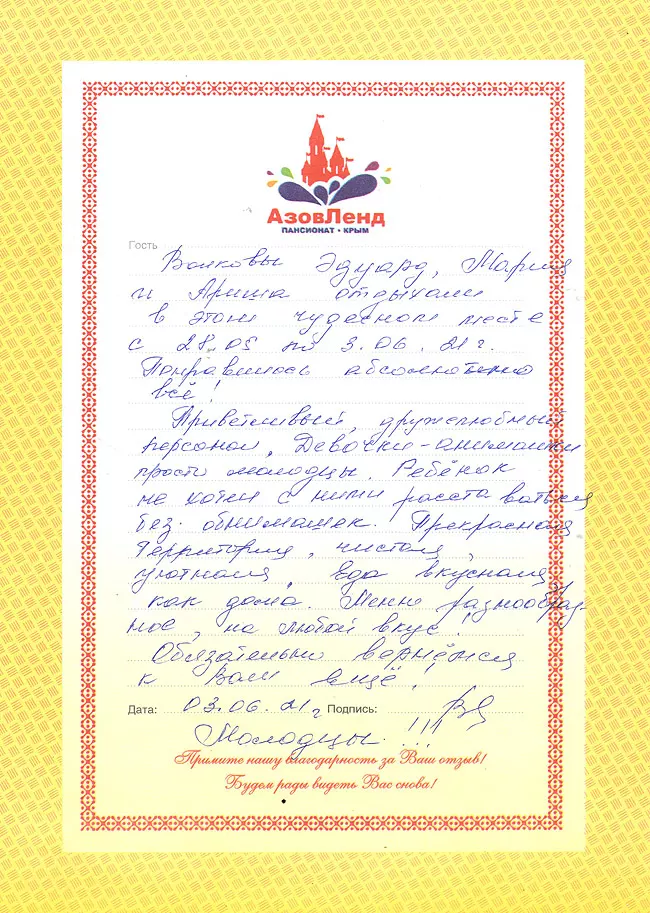 АзовЛенд
ПАНСИОНАТ • КРЫМ
Гость
Волковы Эдуард, Мария
и Ариша отдыхали
в этом чудесном месте
с 28.05 по 3.06.21г.
Понравилось абсолютно
всё!
Приветливый, дружелюбный
персонал. Девочки-аниматоры
просто молодцы. Ребёнок
не хотел с ними расставаться
без обнимашек. Прекрасная
территория, чистая
уютная, еда вкусная,
как дома. Меню разнообраз
ное, на любой вкус.
Обязательно вернёмся
к Вам ещё!
Дата: 03.06.21г Подпись:
Молодцы !!!
Примите нашу благодарность за Ваш отзыв!
Будем рады видеть Вас снова!